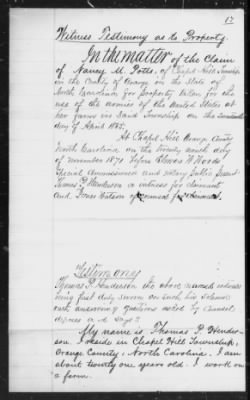 17
Witness Testimony as to Property
In the matter of the Claim
of Nancy M. Potts, of Chapel Hill Township
in the County of Orange in the State of
North Carolina for property taken for the
use of the armies of the United States at
her farm in said Township on the
day of April 1865.
At Chapel Hill Orange County
North Carolina on the twenty day
of November 1871 before
Special Commissioner and Notary Public
Thomas P. Henderson a witness for claimant
And Jones Watson counsel for claimant.
Testimony
Thomas P. Henderson the above named witness
being first duly sworn on oath his solemn
oath answering questions asked by Counsel
deposes and says
My name is Thomas P. Hender-
son. I reside in Chapel Hill Township,
Orange County, North Carolina. I am
about twenty one years old. I work on
a farm.